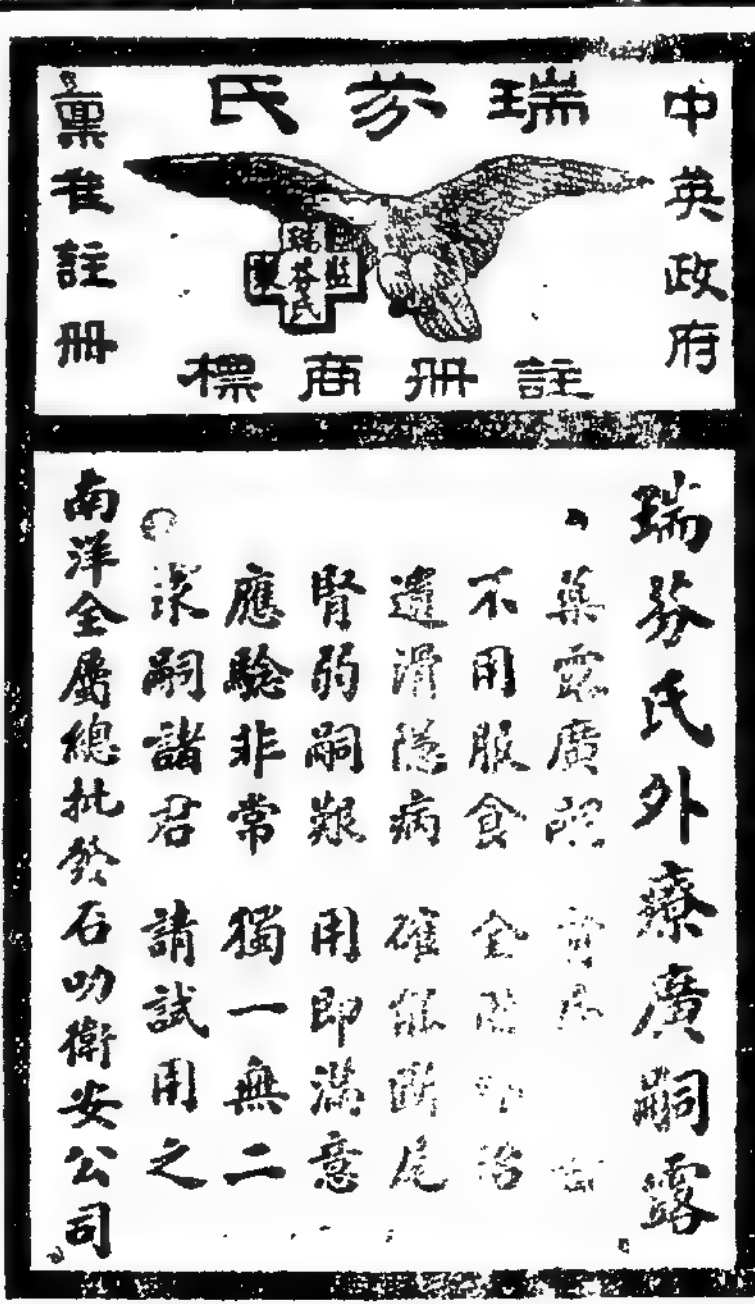 中英政府
瑞芬氏
稟准註冊
瑞芬氏
註冊商標
瑞芬氏外療廣嗣露
藥露廣嗣
不用服食 全 治
遺滑隱病 確能斷尾
腎弱嗣艱 用即滿意
應驗非常 獨一無二
求嗣諸君 請試用之
南洋全屬總批發石叻衛安公司